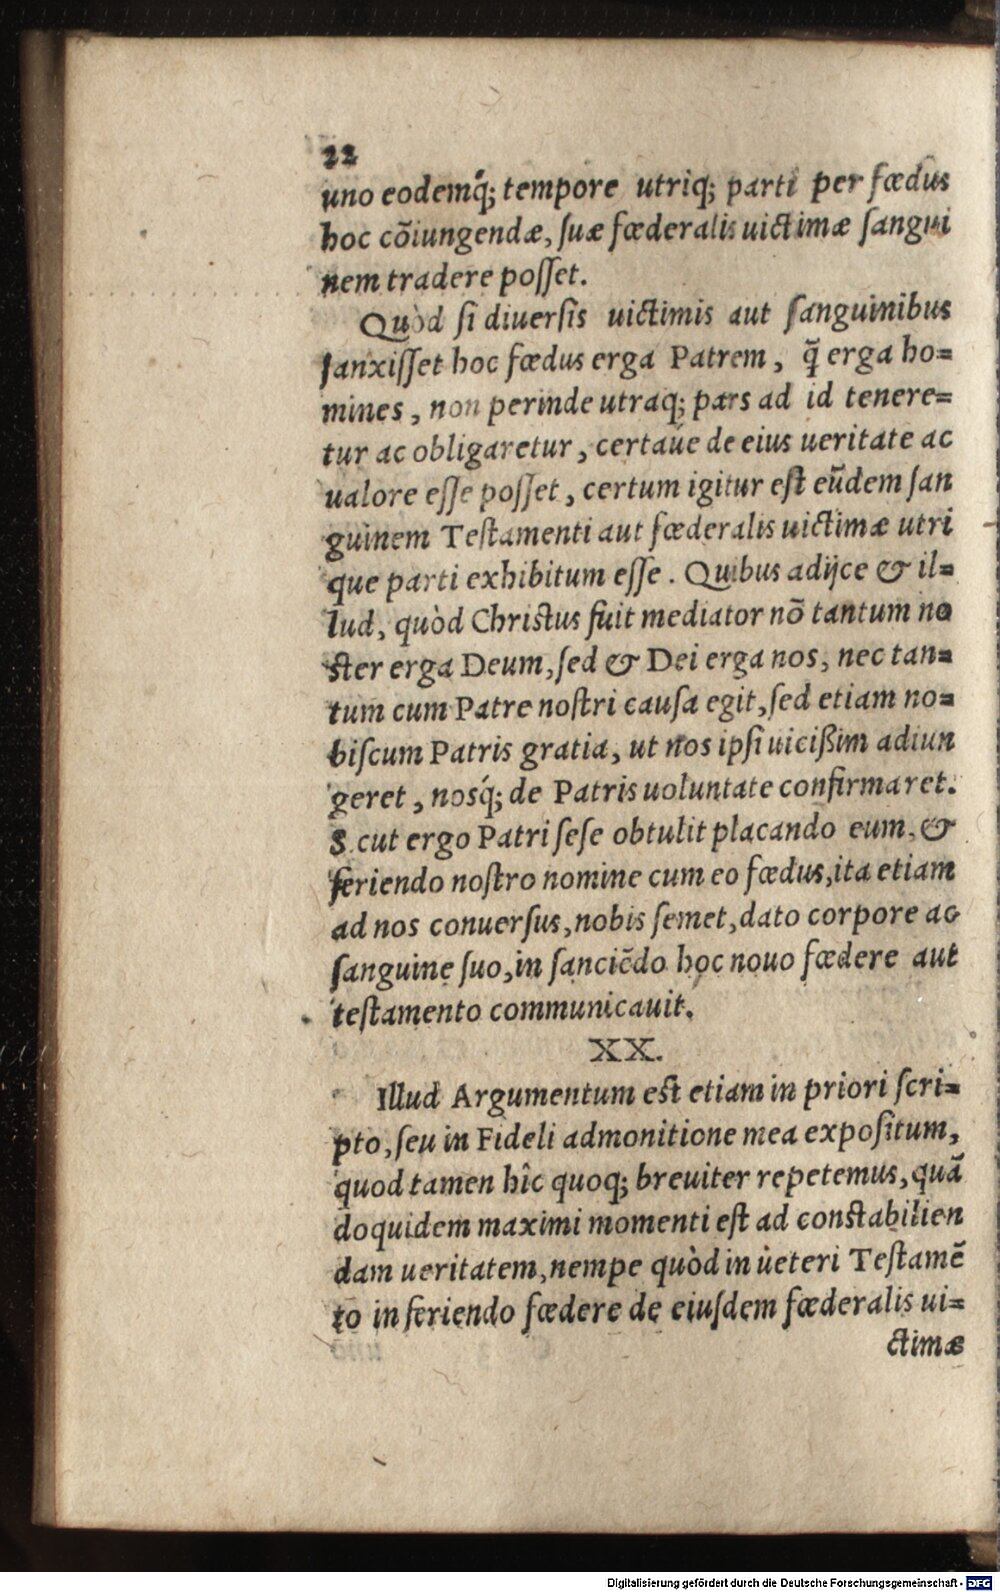 22
uno eodemq́; tempore utriq; parti per fœdus
hoc cõiungendæ, ſuæ fœderalis uictimæ ſangui
nem tradere poſſet.
Quòd ſi diuerſis uictimis aut ſanguinibus
ſanxiſſet hoc fœdus erga Patrem, q̃ erga ho=
mines, non perinde utraq; pars ad id tenere=
tur ac obligaretur, certáue de eius ueritate ac
ualore eſſe poſſet, certum igitur eſt eũdem ſan
guinem Teſtamenti aut fœderalis uictimæ utri
que parti exhibitum eſſe. Quibus adijce & il=
lud, quòd Chriſtus fuit mediator nõ tantum no
ſter erga Deum, ſed & Dei erga nos, nec tan=
tum cum Patre noſtri cauſa egit, ſed etiam no=
biſcum Patris gratia, ut nos ipſi uicißim adiun
geret, nosq́; de Patris uoluntate confirmaret.
S cut ergo Patri ſeſe obtulit placando eum, &
feriendo noſtro nomine cum eo fœdus, ita etiam
ad nos conuerſus, nobis ſemet, dato corpore ac
ſanguine ſuo, in ſanciẽdo hoc nouo fœdere aut
teſtamento communicauit.
XX.
Illud Argumentum eſt etiam in priori ſcri=
pto, ſeu in Fideli admonitione mea expoſitum,
quod tamen hîc quoq; breuiter repetemus, quã
doquidem maximi momenti eſt ad conſtabilien
dam ueritatem, nempe quòd in ueteri Teſtamẽ
to in feriendo fœdere de eiuſdem fœderalis ui=
ctimæ
Digitalisierung gefördert durch die Deutsche Forschungsgemeinschaft - DFG